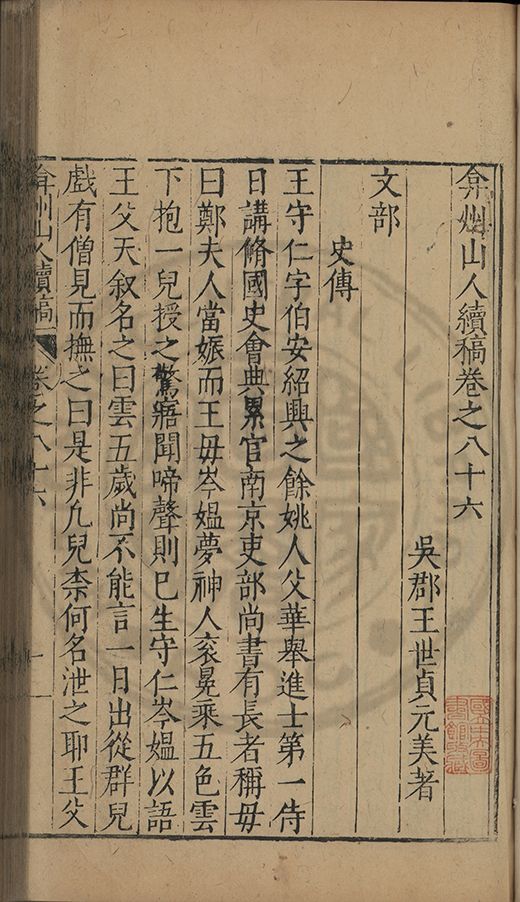 弇州山人續稿卷之八十六
吳郡王世貞元美著
文部
史傳
王守仁字伯安紹興之餘姚人父華舉進士第一侍
日講脩國史會典累官南京吏部尚書有長者稱母
曰鄭夫人當娠而王母岑媪夢神人衮冕乘五色雲
下抱一兒授之驚寤聞啼聲則已生守仁岑媪以語
王父天叙名之曰雲五歲尚不能言一日出從群兒
戲有僧見而撫之曰是非凢兒柰何名泄之耶王父
弇州山人續稿
卷之八十六
一